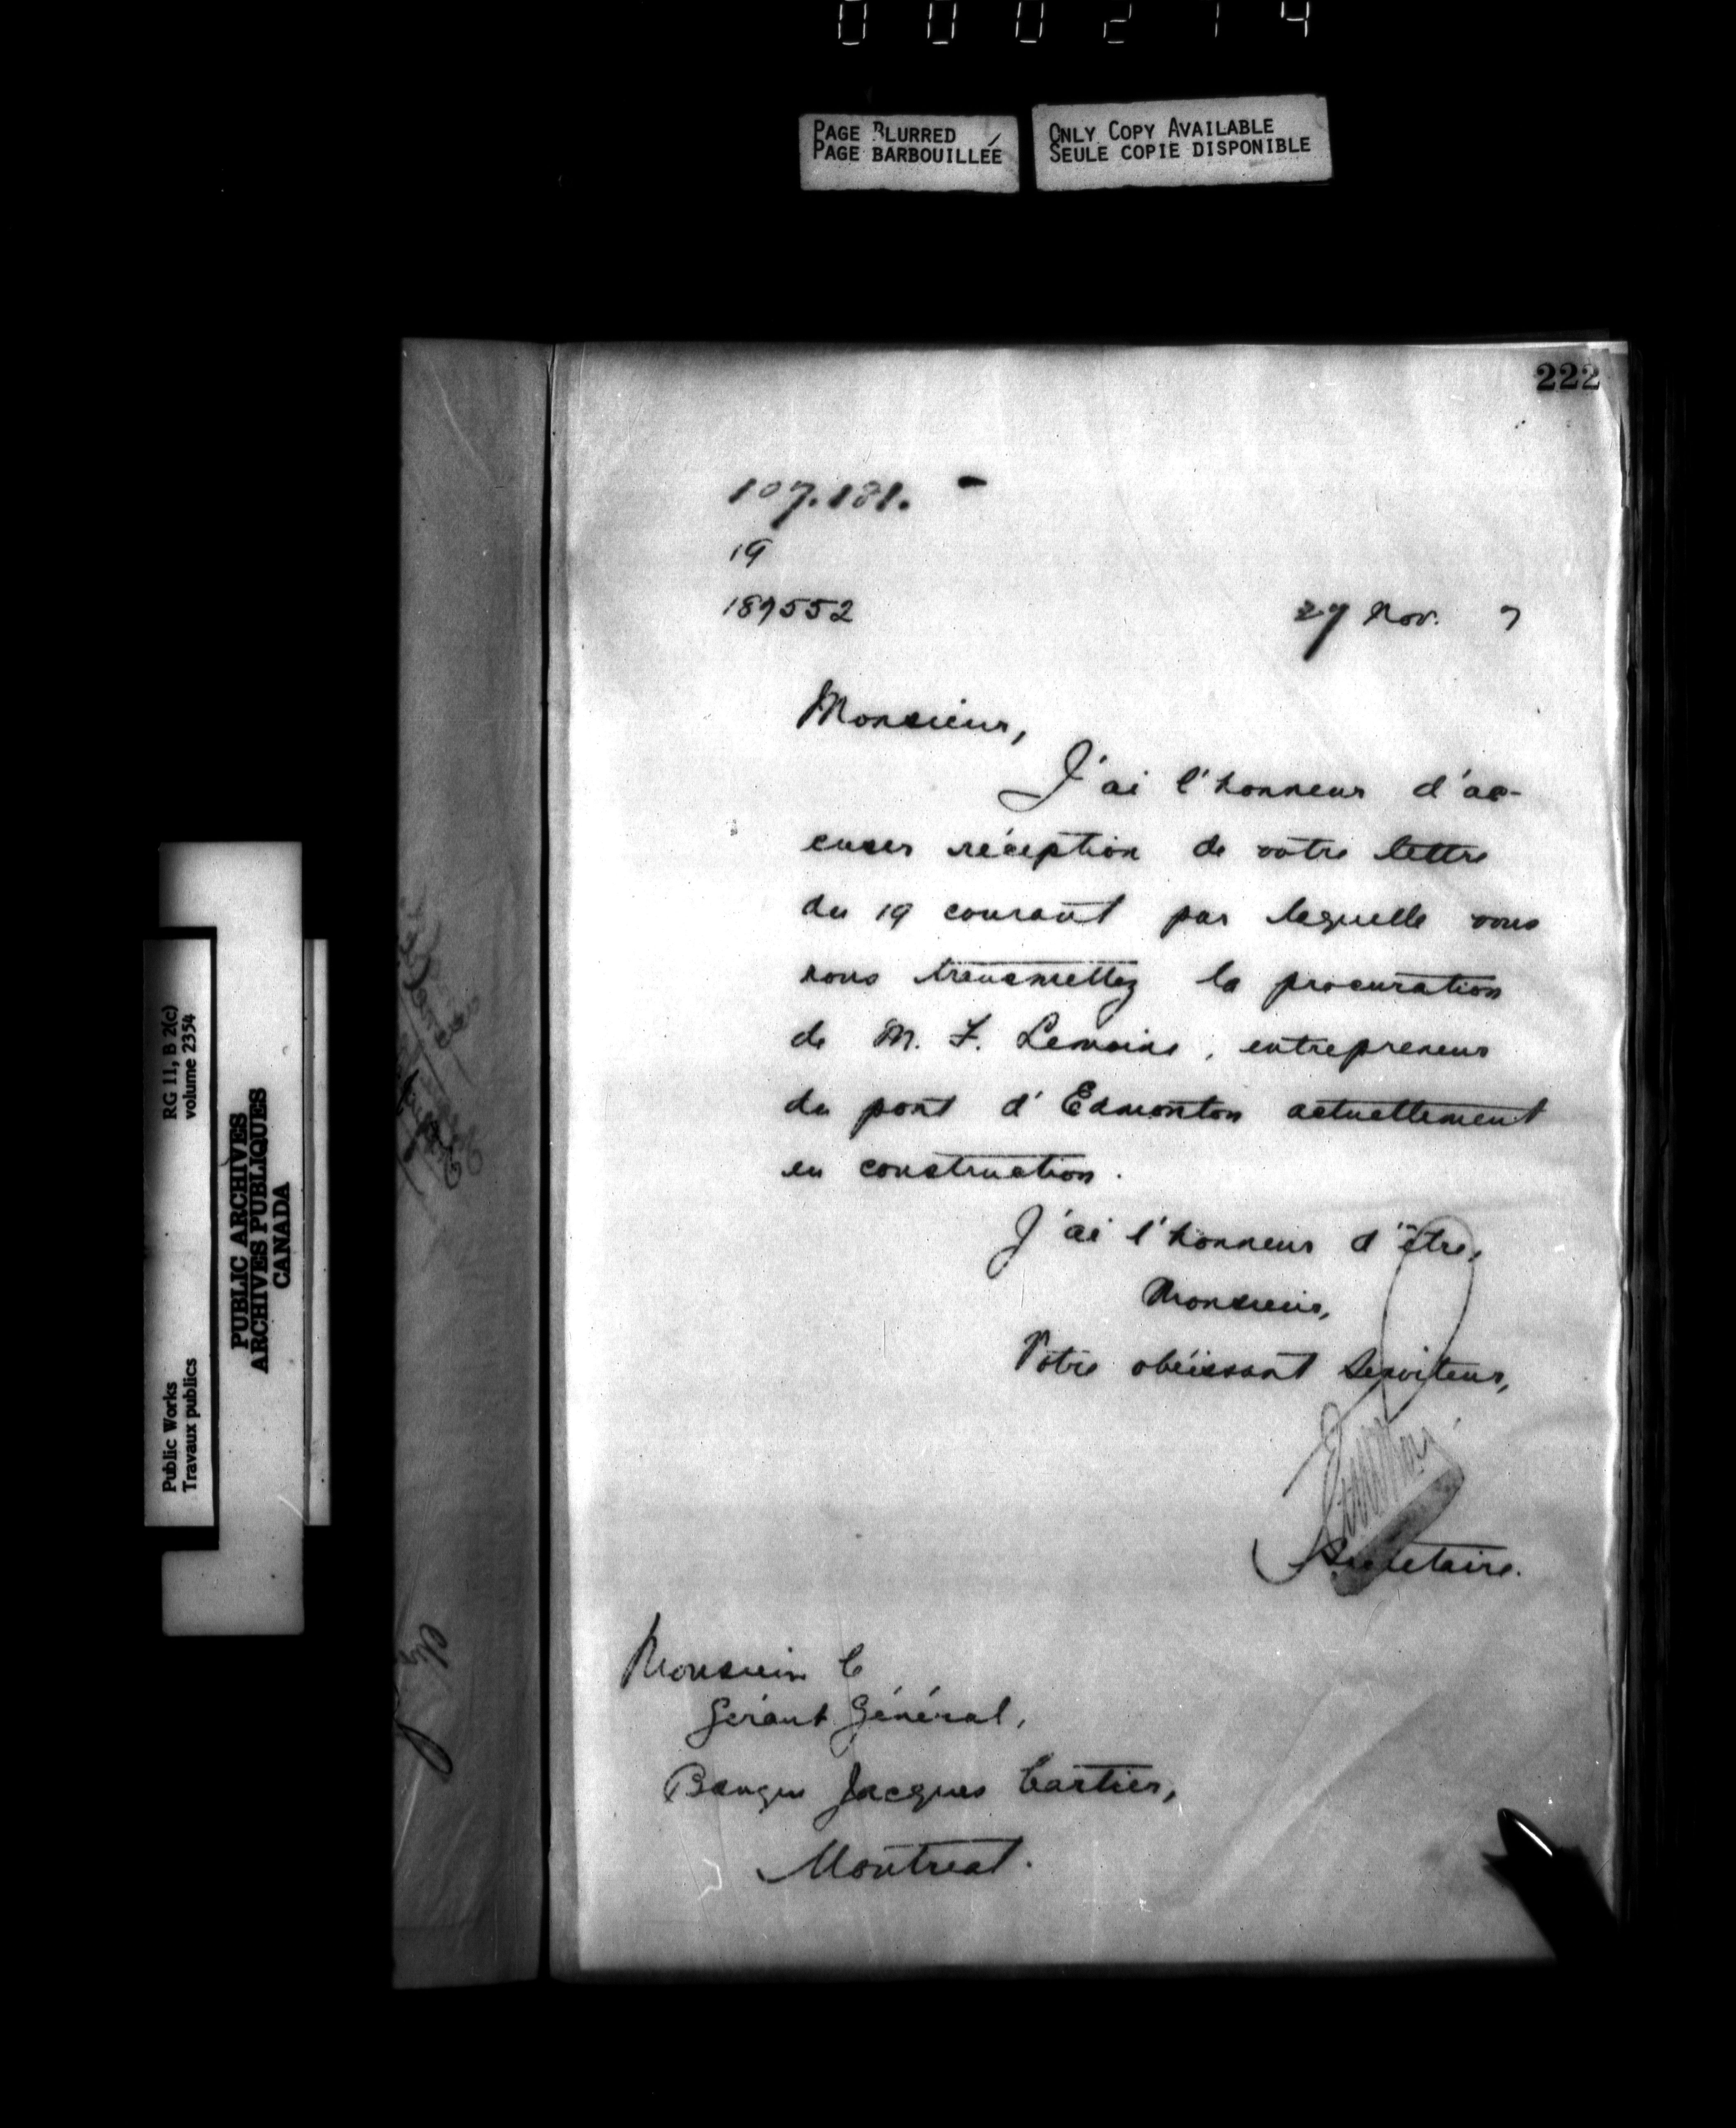 000274
PAGE BLURRED
PAGE BARBOUILLÉE
ONLY COPY AVAILABLE
SEULE COPIE DISPONIBLE
222
107.181. -
19
189552
27 Nov. 7
Monsieur,
J'ai l'honneur d'ac-
cuser réception de votre lettre
du 19 courant par laquelle vous
nous transmettez la procuration
de M. F. Lemoine, entrepreneur
du pont d'Edmonton actuellement
en construction.
J'ai l'honneur d'être,
Monsieur,
Votre obéissant Serviteur,
Secrétaire.
Monsieur le
Gérant Général,
Banque Jacques Cartier,
Montreal.
Public Works
Travaux publics
RG 11, B 2(c)
volume 2354
PUBLIC ARCHIVES
ARCHIVES PUBLIQUES
CANADA